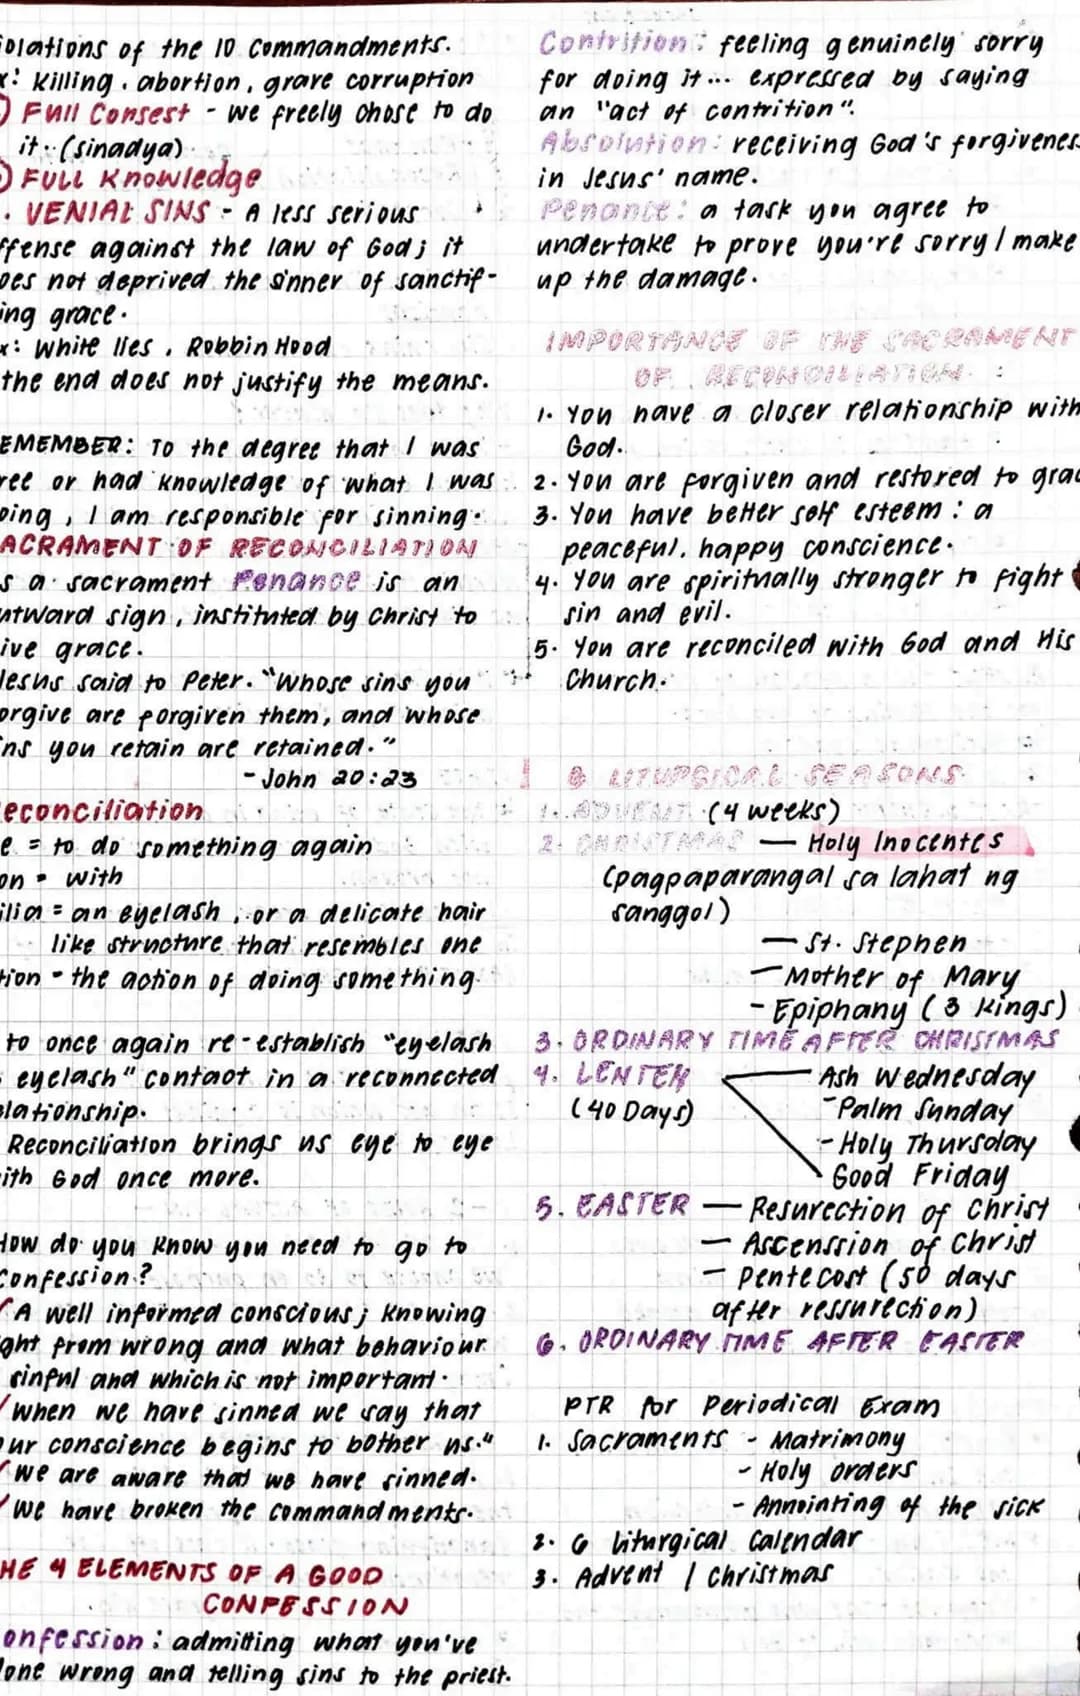 iolations of the 10 Commandments.
x: Killing, abortion, grave corruption
Full Consest - we freely chose to do
it. (sinadya)
FULL Knowledge
. VENIAL SINS - A less serious
ffense against the law of God; it
oes not deprived the sinner of sanctif-
ing grace.
x: White lies, Robbin Hood
the end does not justify the means.
EMEMBER: To the degree that I was
ree or had knowledge of what I was
oing, I am responsible for sinning.
ACRAMENT OF RECONCILIATION
s a sacrament Penance is an
utward sign, instituted by Christ to
ive grace.
Jesus said to Peter. "Whose sins you
orgive are forgiven them, and whose
ins you retain are retained."
- John 20:23
econciliation
e = to do something again
on - with
ilia = an eyelash, or a delicate hair
like structure that resembles one
tion - the action of doing something.
to once again re-establish "eyelash
eyelash" contact in a reconnected
elationship.
Reconciliation brings us eye to eye
ith God once more.
How do you know you need to go to
Confession?
A well informed conscious; knowing
ght from wrong and what behaviour
sinful and which is not important.
when we have sinned we say that
ur conscience begins to bother us."
we are aware that we have sinned.
we have broken the commandments.
HE 4 ELEMENTS OF A GOOD
CONFESSION
onfession: admitting what you've
one wrong and telling sins to the priest.
Contrition: feeling genuinely sorry
for doing it... expressed by saying
an "act of contrition".
Absolution: receiving God's forgivenes
in Jesus' name.
Penance: a task you agree to
undertake to prove you're sorry / make
up the damage.
IMPORTANCE OF THE SACRAMENT
OF RECONCILIATION :
1. You have a closer relationship with
God.
2. You are forgiven and restored to grac
3. You have better self esteem : a
peaceful, happy conscience.
4. You are spiritually stronger to fight
sin and evil.
5. You are reconciled with God and His
Church.
6 LITURGICAL SEASONS
1. ADVENT (4 weeks)
2. CHRISTMAS — Holy Inocentes
(pagpaparangal sa lahat ng
sanggol)
— St. Stephen
— Mother of Mary
- Epiphany (3 Kings)
3. ORDINARY TIME AFTER CHRISTMAS
4. LENTEN — Ash Wednesday
(40 Days) - Palm Sunday
- Holy Thursday
Good Friday
5. EASTER — Resurection of Christ
— Ascenssion of Christ
— Pentecost (50 days
after ressurection)
6. ORDINARY TIME AFTER EASTER
PTR for Periodical Exam
1. Sacraments - Matrimony
- Holy orders
- Annointing of the sick
2. 6 liturgical Calendar
3. Advent / Christmas